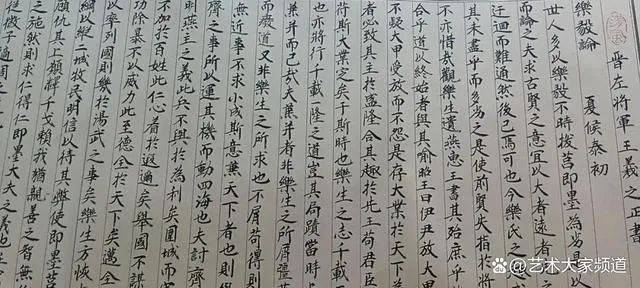 樂毅論 晉左將軍王羲之書
夏候泰初
世人多以樂毅不時拔莒即墨為劣是以
而論之夫求古賢之意宜以大者遠者
迂迴而難通然後已焉可也今樂氏之
其未盡乎而多劣之是使前賢失指於將
不亦惜哉觀樂生遺燕惠王書其殆庶乎
合乎道以終始者與其喻昭王曰伊尹放大甲
不疑大甲受放而不怨是存大業於天下
者必致其主於盛隆合其趣於王苟君臣
符斯大業定矣于斯時也樂生之志千載
也亦將行千載一隆之道豈其局蹟當時
兼并而已哉夫兼并者非樂生之所屑彊
而廢道又非樂生之所求也不屑苟得則
無近事不求小成斯意兼天下者也則
齊之事所以運其機而動四海也夫討齊
明燕主之我此兵不興於為利矣圍城而
不加於百姓此仁心著於遐邇矣舉國不謀
功除暴不以威力此至德全於天下矣邁全
以率列國則幾於湯武之事矣樂生方恢
綱以縱二城牧民明信以待其弊使即墨莒
顧仇其上願釋干戈賴我猶親善之智無
之施然則求仁得仁即墨大夫之義也
微子適周之
艺术大家频道